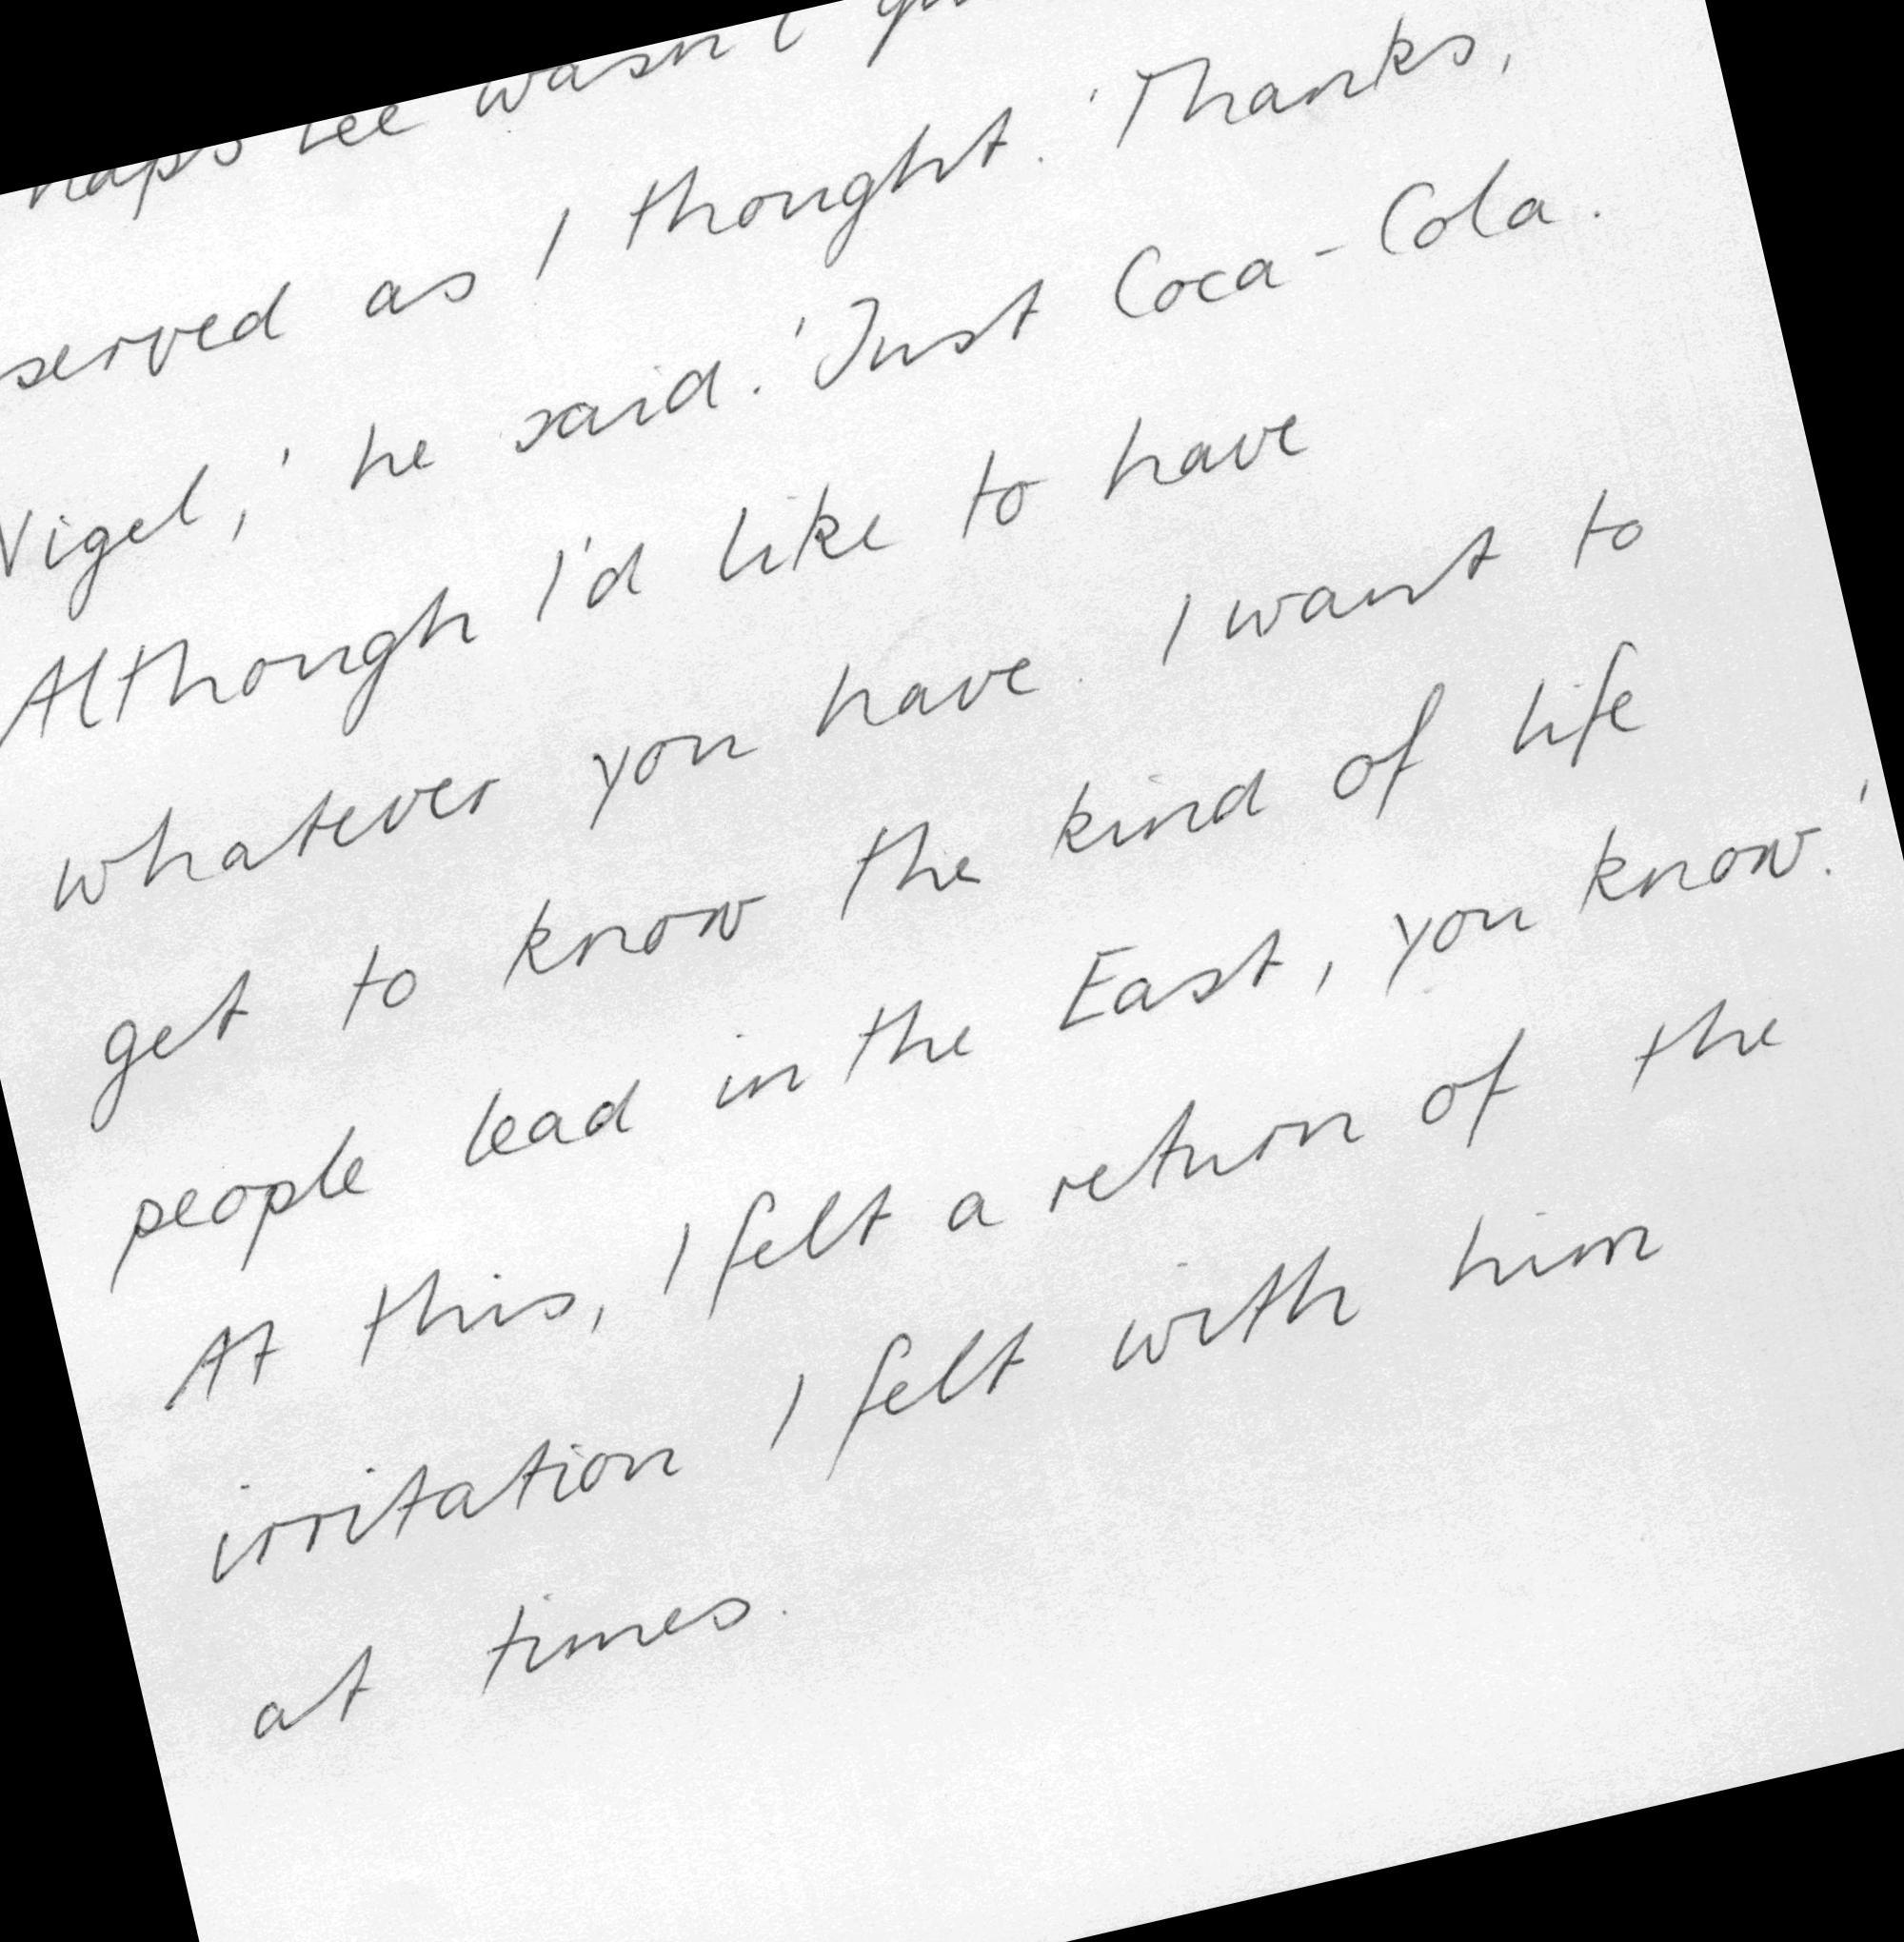 Lee wasn't
served as I thought. 'Thanks,
Nigel,' he said. 'Just Coca-Cola.
Although I'd like to have
whatever you have. I want to
get to know the kind of life
people lead in the East, you know.'
At this, I felt a return of the
irritation I felt with him
at times.